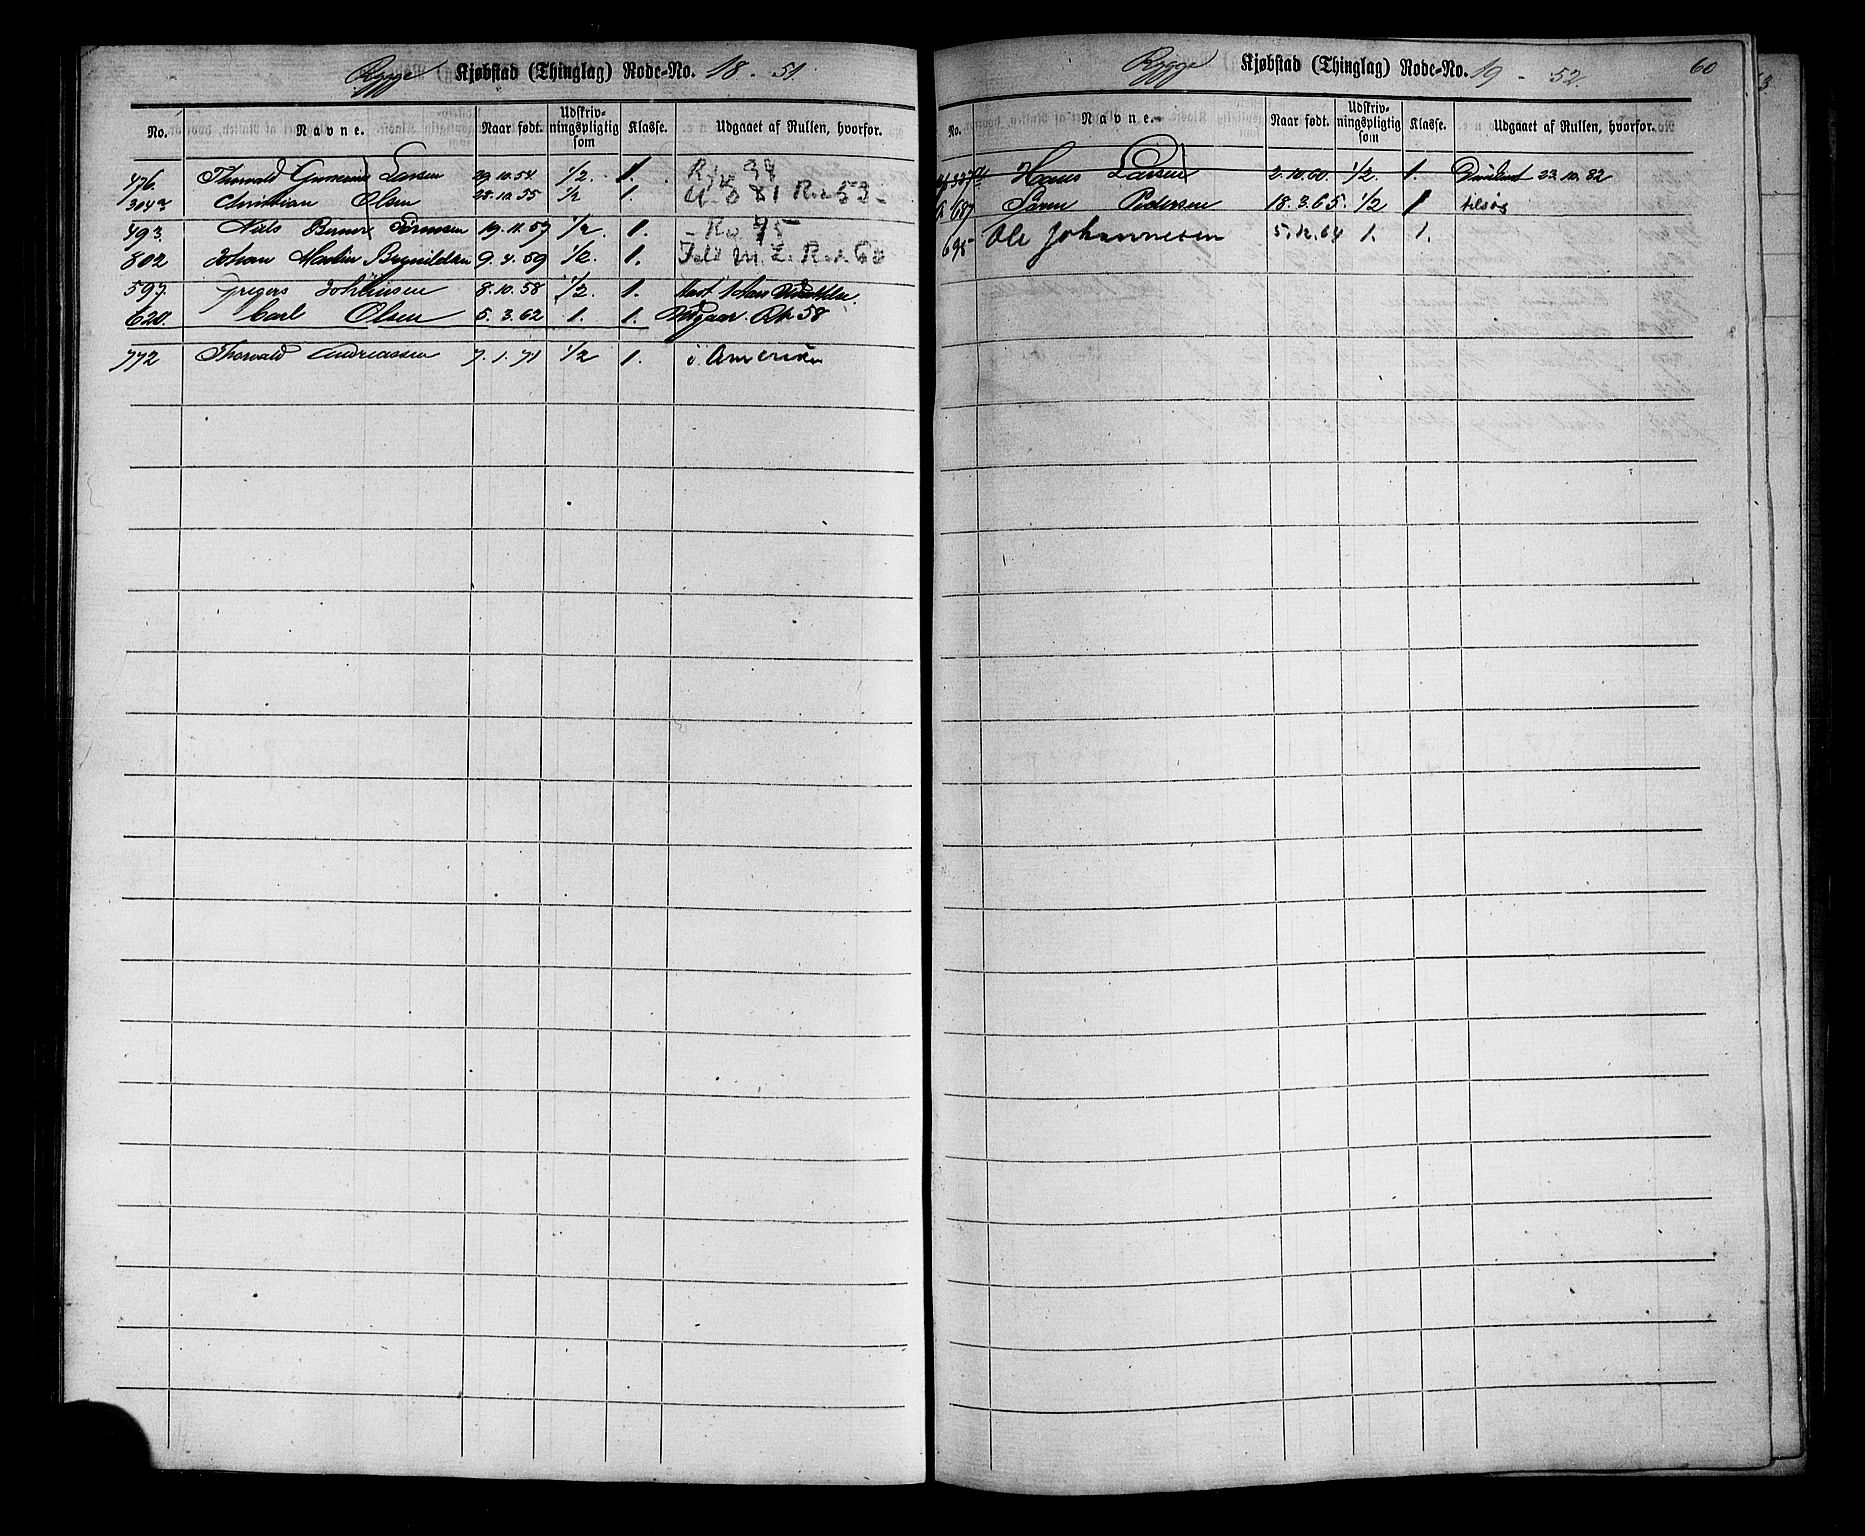 Rygge Kjøbstad (Thinglag) Rode-No. 18 - 51.
No. Navne. Naar født. Udskrivningspligtig som Klasse. Udgaaet af Rullen, hvorfor.
476. Thorvald Gunerius Larsen 29.10.54 1/2. 1.
304a Christian Olsen 28.10.55 1/2 1.
493. Niels Larsen 19.11.57 1/2. 1.
802 Johan Martin Brynildsen 9.4.59 1/2. 1.
597. Gregers Johansen 8.10.58 1/2. 1.
620. Carl Olsen 5.3.62 1. 1. 58
772 Thorvald Andreassen 7.1.71 1/2 1. i Amerika
Rygge Kjøbstad (Thinglag) Rode-No. 19 - 52. 60
No. Navne. Naar født. Udskrivningspligtig som Klasse. Udgaaet af Rullen, hvorfor.
327 Hans Larsen 2.10.60. 1/2. 1. 23.10.82
687 Søren Pedersen 18.3.65. 1/2 1 tilsøs
695 Ole Johannesen 5.12.64 1. 1.